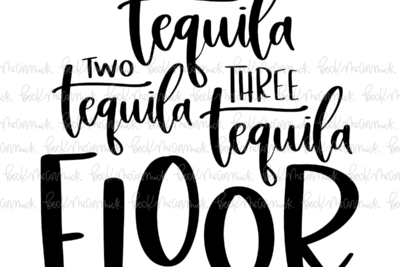 tequila
TWO THREE
tequila tequila
FLOOR